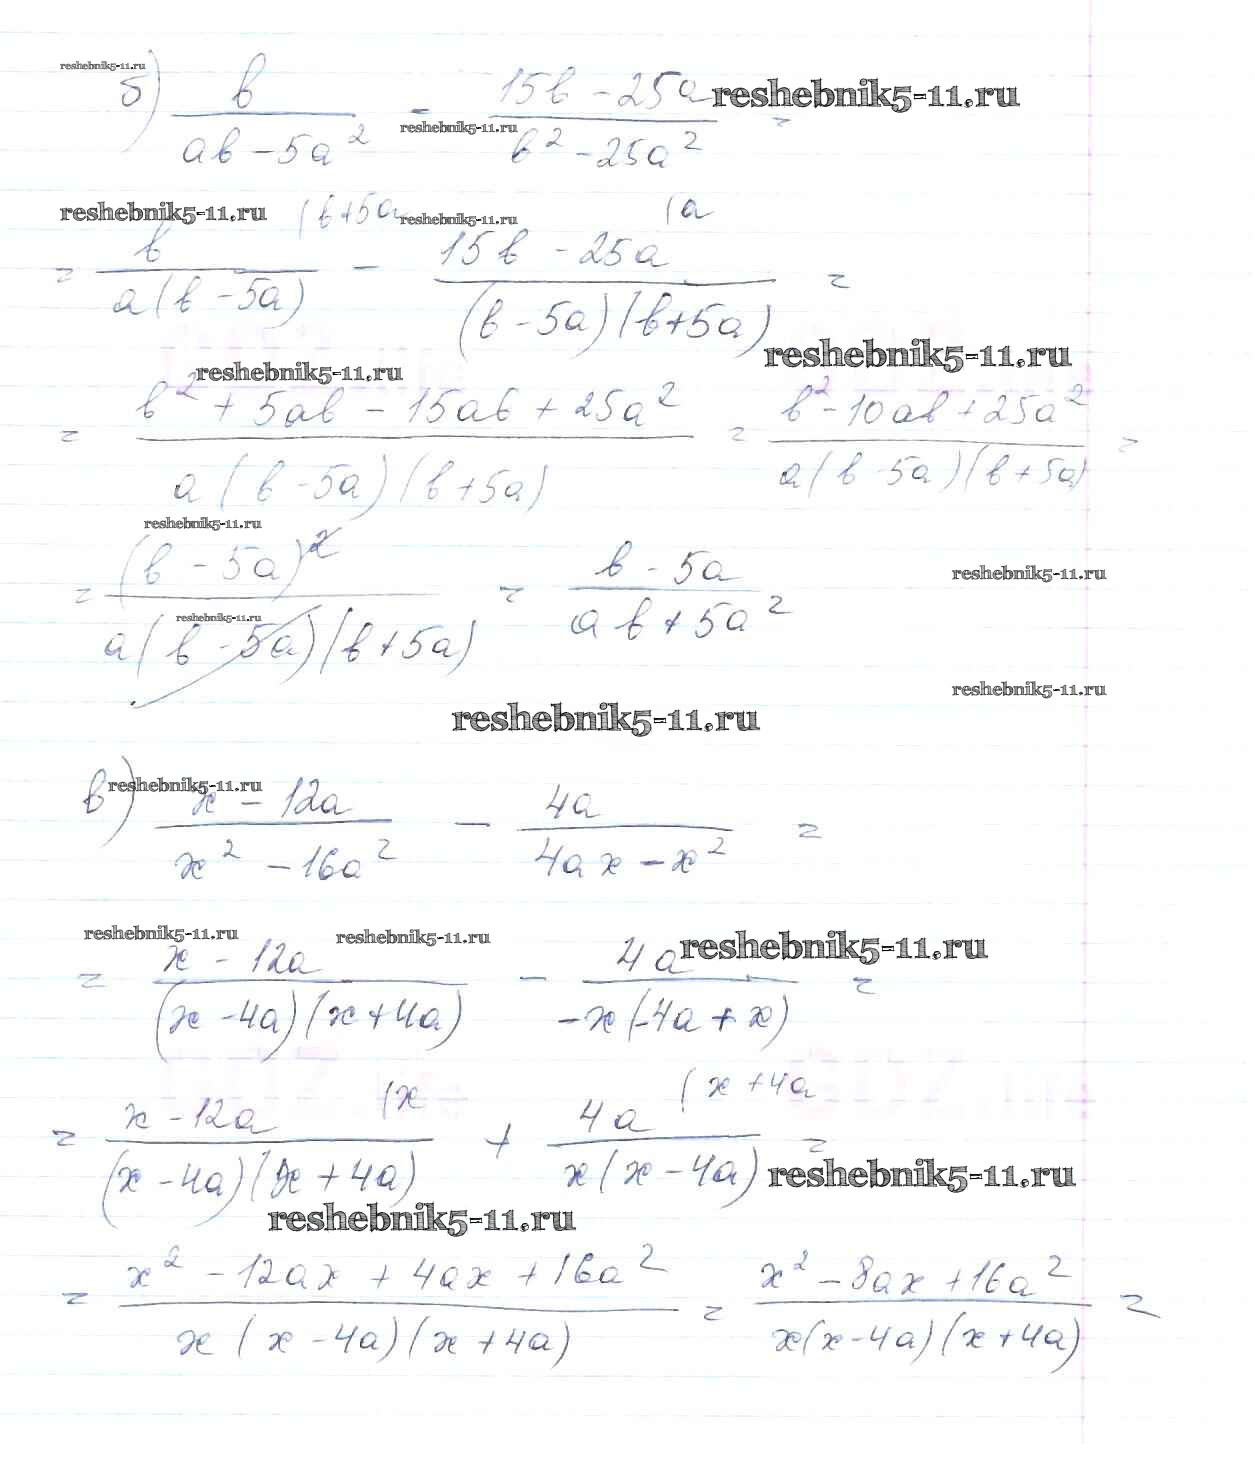 reshebnik5-11.ru
б) b/(ab - 5a²) - (15b - 25a)/(b² - 25a²) = reshebnik5-11.ru
reshebnik5-11.ru
reshebnik5-11.ru (b+5a reshebnik5-11.ru (a
= b/(a(b - 5a)) - (15b - 25a)/((b - 5a)(b+5a)) =
reshebnik5-11.ru
reshebnik5-11.ru
= (b² + 5ab - 15ab + 25a²)/(a(b - 5a)(b+5a)) = (b² - 10ab + 25a²)/(a(b - 5a)(b+5a)) =
reshebnik5-11.ru
= (b - 5a)²/(a(b - 5a)(b+5a)) = (b - 5a)/(ab + 5a²) reshebnik5-11.ru
reshebnik5-11.ru
reshebnik5-11.ru
reshebnik5-11.ru
reshebnik5-11.ru
в) (x - 12a)/(x² - 16a²) - 4a/(4ax - x²) =
reshebnik5-11.ru reshebnik5-11.ru reshebnik5-11.ru
= (x - 12a)/((x - 4a)(x+4a)) - 4a/(-x(-4a + x)) =
(x (x+4a
= (x - 12a)/((x - 4a)(x + 4a)) + 4a/(x(x - 4a)) =
reshebnik5-11.ru
reshebnik5-11.ru
= (x² - 12ax + 4ax + 16a²)/(x(x - 4a)(x+4a)) = (x² - 8ax + 16a²)/(x(x - 4a)(x+4a)) =